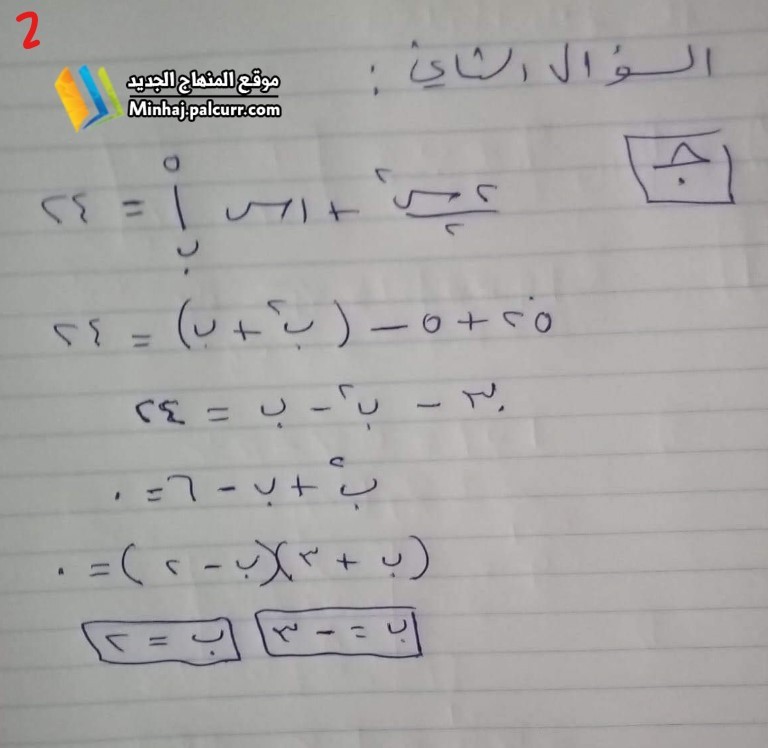 2
موقع المنهاج الجديد
Minhaj.palcurr.com
السؤال الثاني :
ج
٢س٢/٢ + ١س |٥ب = ٢٤
٢٥ + ٥ - (ب٢ + ب) = ٢٤
٣٠ - ب٢ - ب = ٢٤
ب٢ + ب - ٦ = ٠
(ب + ٣)(ب - ٢) = ٠
ب = -٣ ب = ٢